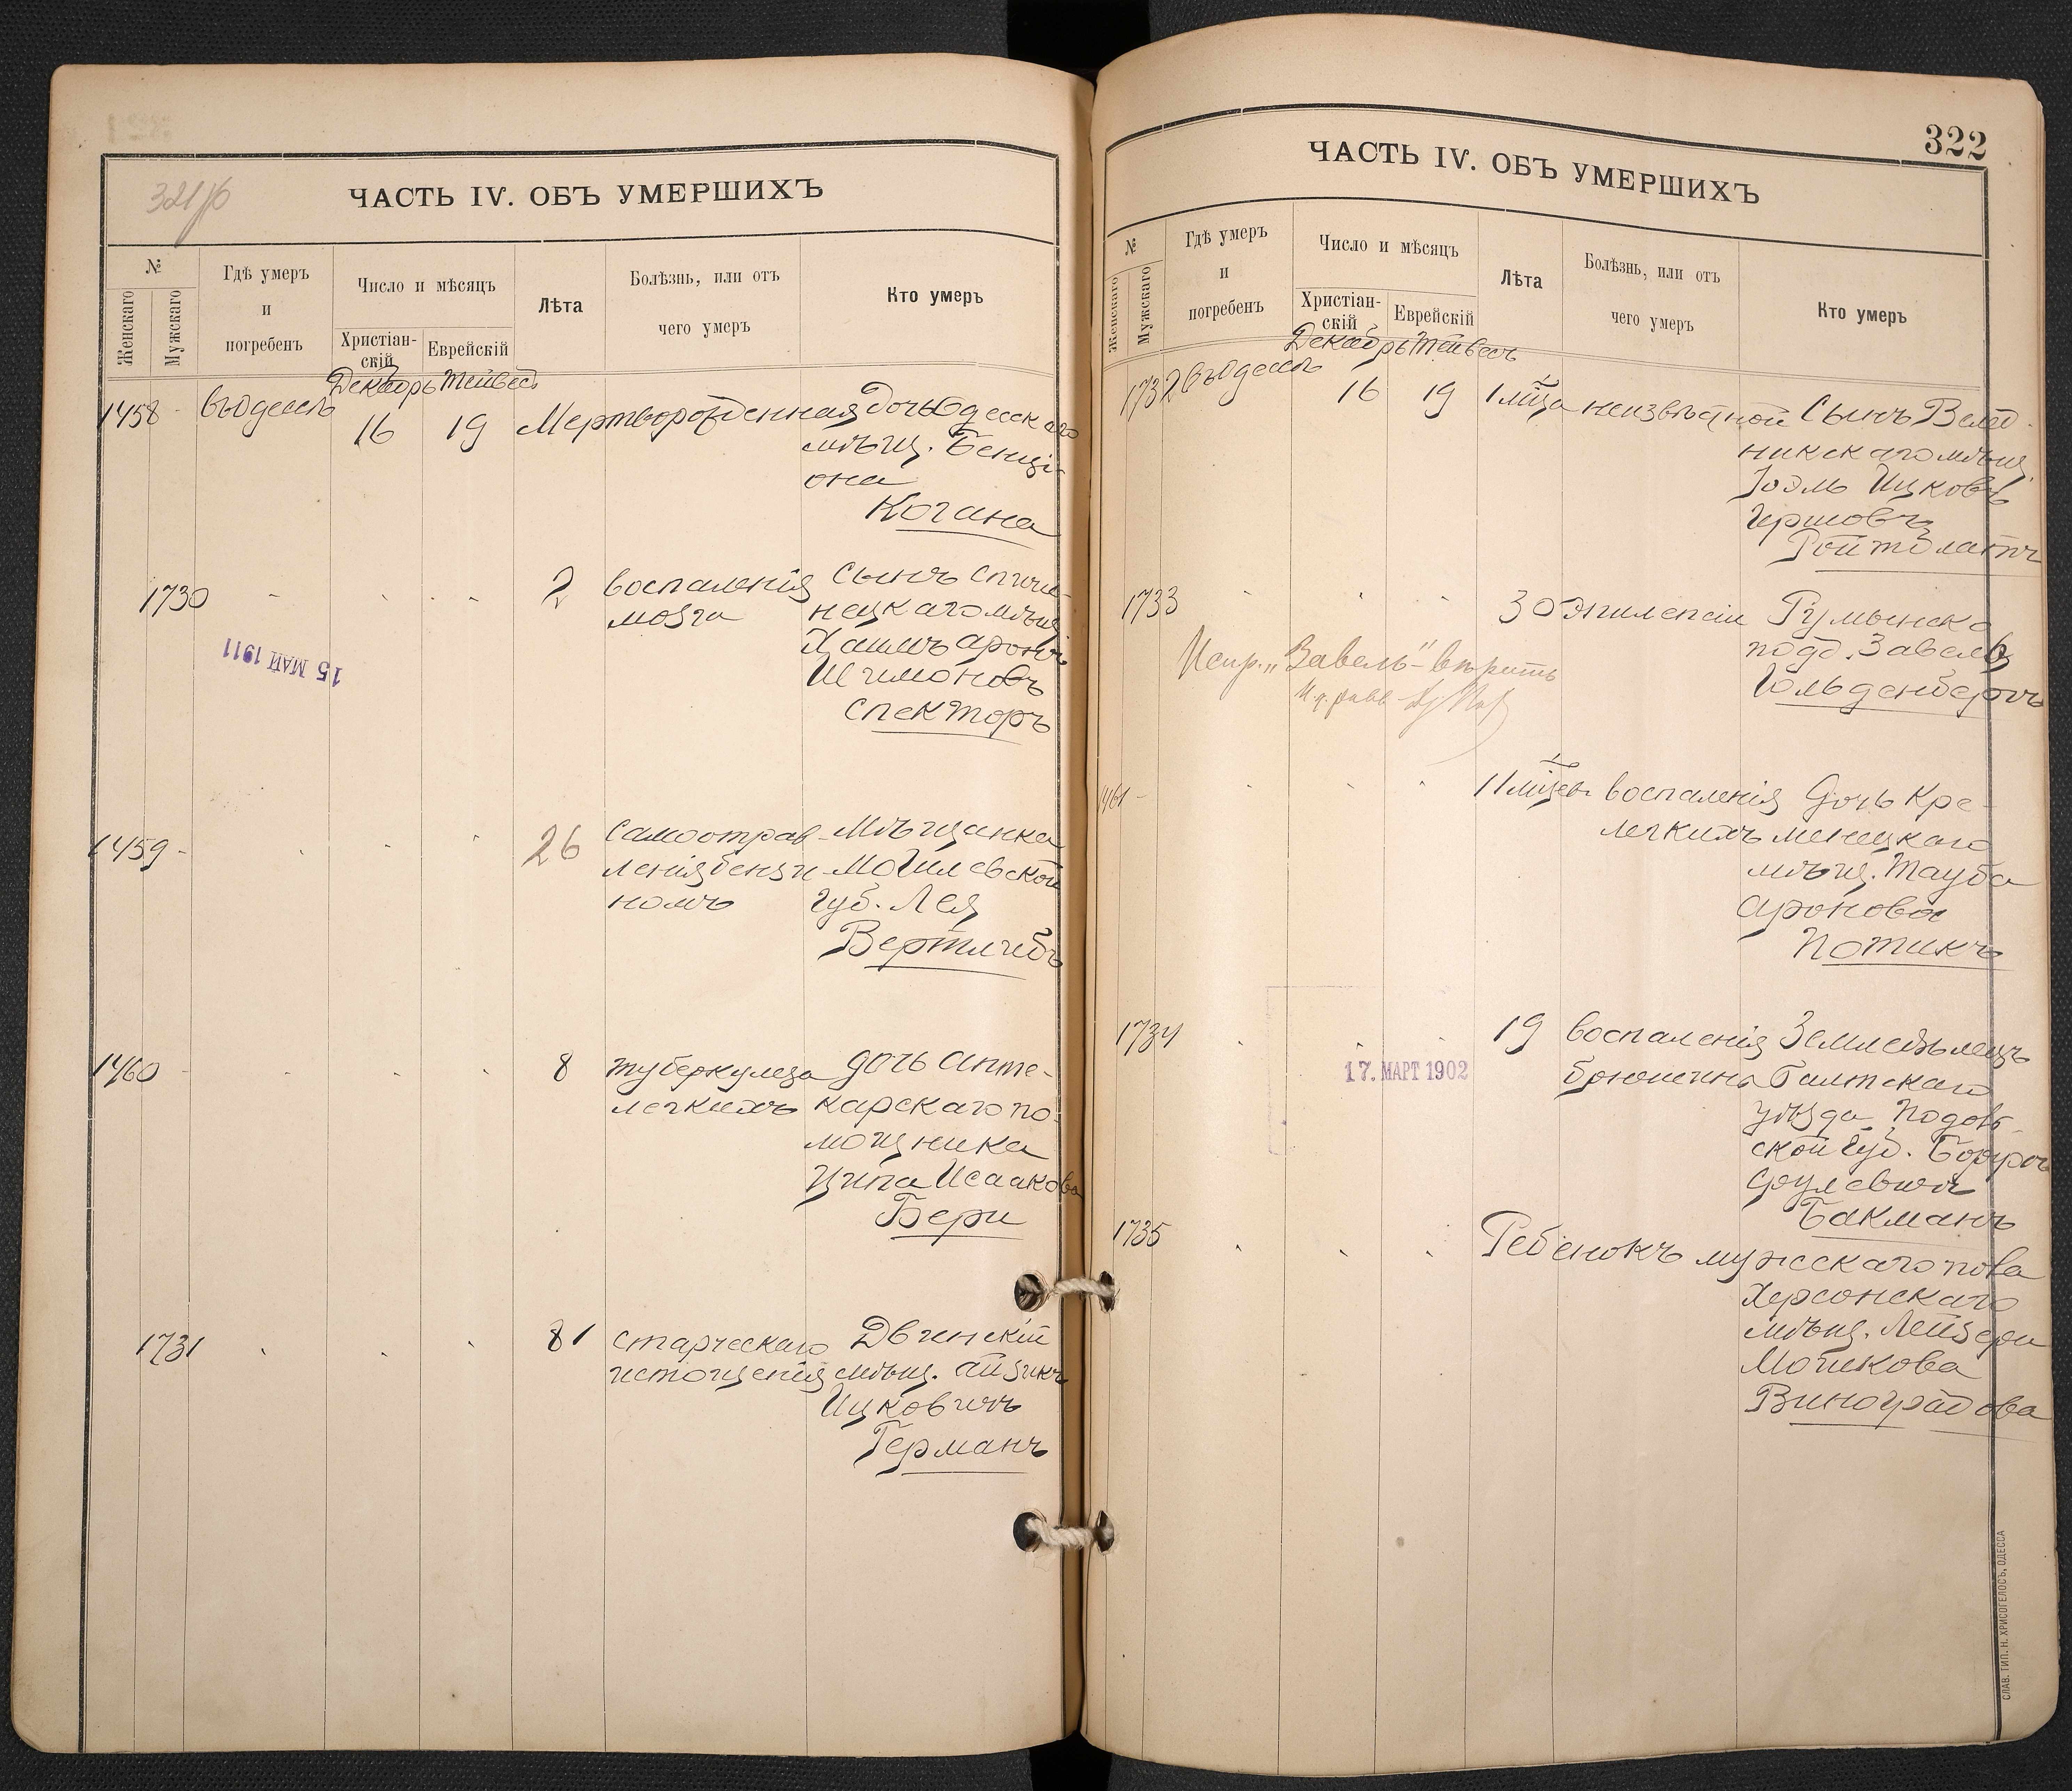 321 об
ЧАСТЬ IV. ОБЪ УМЕРШИХЪ
№
Женскаго
Мужскаго
Гдѣ умеръ
и
погребенъ
Число и мѣсяцъ
Христіан-
скій
Еврейскій
Лѣта
Болѣзнь, или отъ
чего умеръ
Кто умеръ
Декабрь Тейвесъ
1458 въ Одессѣ 16 19 Мертворожденная дочь Одесскаго
мѣщ. Бенці-
она
Когана
1730 2 воспаленія Сынъ Спичи-
мозга нецкаго мѣщ.
Хаимъ Аронъ
Шимоновъ
Спекторъ
15 МАЙ 1911
1459 26 самоотрав- Мѣщанка
ленія бензи- Могилевской
номъ губ. Лея
Вертлибъ
1460 8 туберкулеза дочь апте-
легкихъ карскаго по-
мощника
Ципа Исаакова
Бери
1731 81 старческаго Двинскій
истощенія мѣщ. Айзикъ
Ицковичъ
Германъ
322
ЧАСТЬ IV. ОБЪ УМЕРШИХЪ
№
Женскаго
Мужскаго
Гдѣ умеръ
и
погребенъ
Число и мѣсяцъ
Христіан-
скій
Еврейскій
Лѣта
Болѣзнь, или отъ
чего умеръ
Кто умеръ
Декабрь Тейвесъ
1732 въ Одессѣ 16 19 1 м̃ца неизвѣстной Сынъ Велед-
никскаго мѣщ.
Іоэль Ицковъ
Гершовъ
Ройтблатъ
1733 30 эпилепсіи Румынск.
подд. Завель
Гольденбергъ
Испр. „Завель" вѣрить
И. д. равв.
1461 11 м̃цев. воспаленія Дочь Кре-
легкихъ менецкаго
мѣщ. Тауба
Аронова
Потикъ
1734 19 воспаленія Земледѣлецъ
брюшины Балтскаго
уѣзда Подоль-
ской губ. Борухъ
Срулевичъ
Бакманъ
17. МАРТ 1902
1735 Ребенокъ мужскаго пола
Херсонскаго
мѣщ. Лейзера
Мошкова
Виноградова
СЛАВ. ТИП. Н. ХРИСОГЕЛОСЪ, ОДЕССА